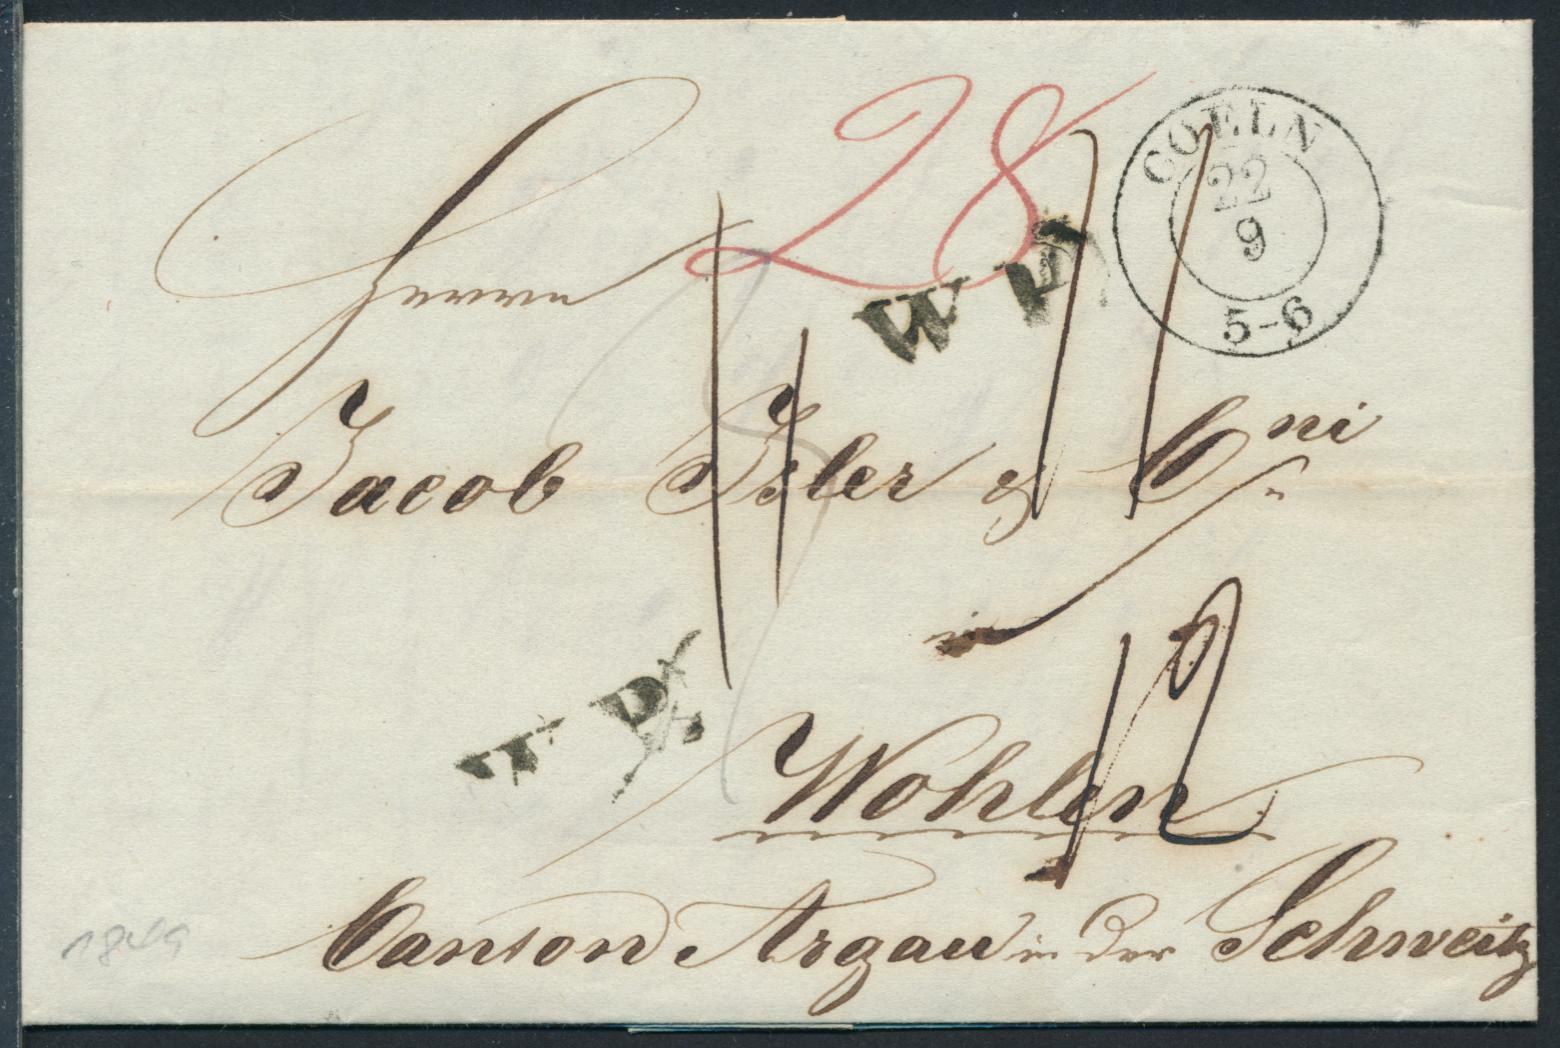 28
COELN
22
9
5-6
Herrn
W
Jacob Isler & Co
in
12
W R
Wohlen
Canton Argau in der Schweitz
1849